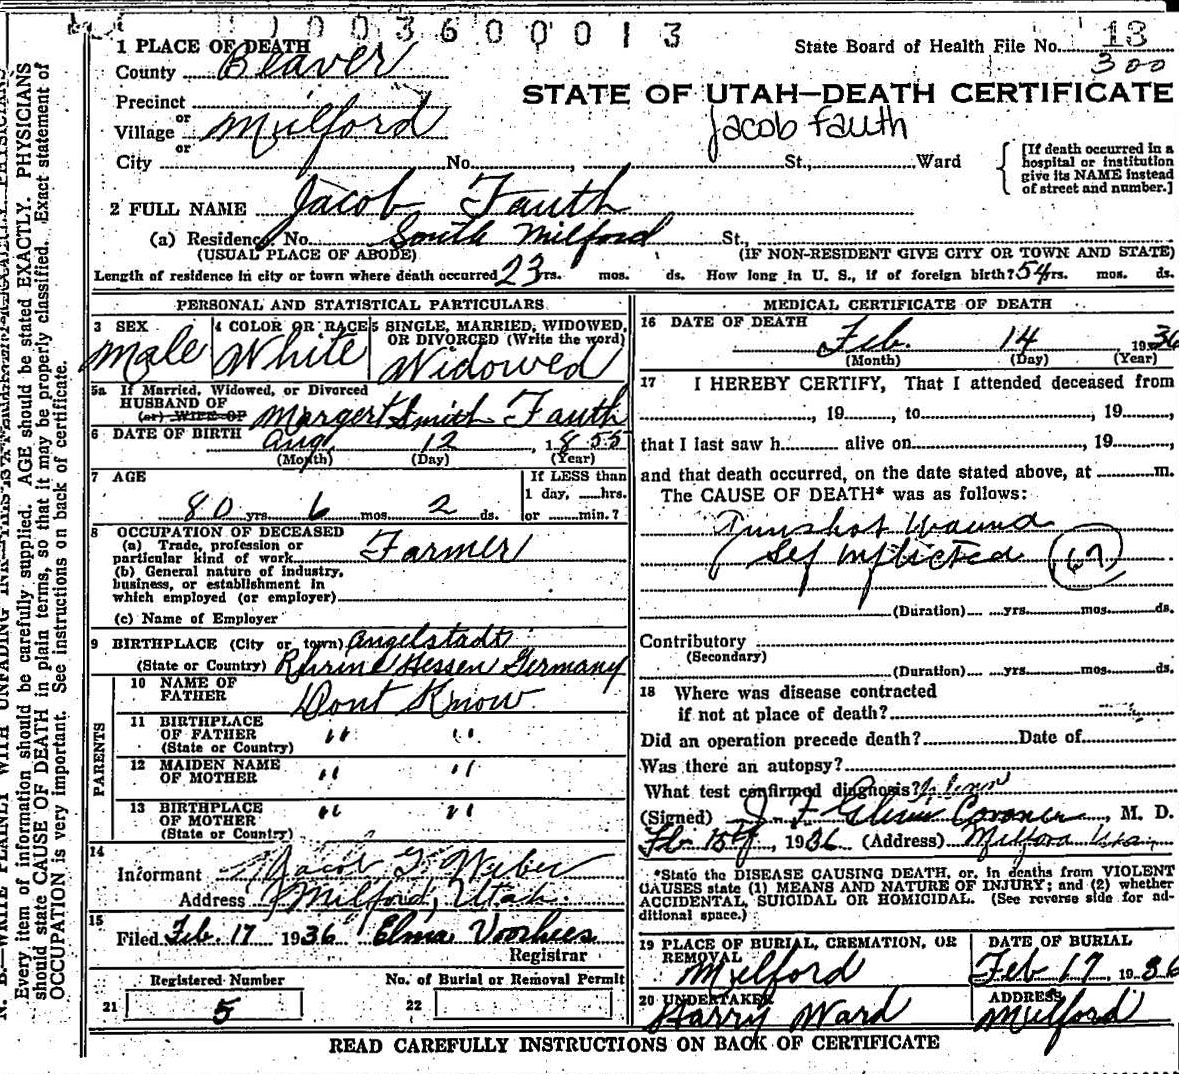 0 0 3 6 0 0 0 1 3
1 PLACE OF DEATH
State Board of Health File No. 13
300
County Beaver
STATE OF UTAH—DEATH CERTIFICATE
Jacob Fauth
Precinct
or
Village Milford
or
City No. , St., Ward
[If death occurred in a hospital or institution give its NAME instead of street and number.]
2 FULL NAME Jacob Fauth
(a) Residence. No. South Milford St.,
(USUAL PLACE OF ABODE) (IF NON-RESIDENT GIVE CITY OR TOWN AND STATE)
Length of residence in city or town where death occurred 23 yrs. mos. ds. How long in U. S., if of foreign birth? 54 yrs. mos. ds.
PERSONAL AND STATISTICAL PARTICULARS
3 SEX 4 COLOR OR RACE 5 SINGLE, MARRIED, WIDOWED,
OR DIVORCED (Write the word)
Male White Widowed
5a If Married, Widowed, or Divorced
HUSBAND OF
(or) WIFE OF Margert Smith Fauth
6 DATE OF BIRTH Aug 12, 1855
(Month) (Day) (Year)
7 AGE
If LESS than
1 day, hrs.
80 yrs 6 mos. 2 ds. or min.?
8 OCCUPATION OF DECEASED
(a) Trade, profession or
particular kind of work Farmer
(b) General nature of industry,
business, or establishment in
which employed (or employer)
(c) Name of Employer
9 BIRTHPLACE (City or town) Angelstadt
(State or Country) Rhrine Hessen Germany
PARENTS
10 NAME OF
FATHER Dont Know
11 BIRTHPLACE
OF FATHER " "
(State or Country)
12 MAIDEN NAME
OF MOTHER " "
13 BIRTHPLACE
OF MOTHER " "
(State or Country)
14
Informant Jacob G Weber
Address Milford, Utah.
15
Filed Feb. 17 1936 Elma Voorhees
Registrar
Registered Number No. of Burial or Removal Permit
21 5 22
MEDICAL CERTIFICATE OF DEATH
16 DATE OF DEATH
Feb. 14 1936
(Month) (Day) (Year)
17 I HEREBY CERTIFY, That I attended deceased from
, 19 , to , 19 ,
that I last saw h alive on , 19 ,
and that death occurred, on the date stated above, at m.
The CAUSE OF DEATH* was as follows:
Gunshot Wound
Self Inflicted
(Duration) yrs. mos. ds.
Contributory
(Secondary)
(Duration) yrs. mos. ds.
18 Where was disease contracted
if not at place of death?
Did an operation precede death? Date of
Was there an autopsy?
What test confirmed diagnosis?
(Signed) J. F. Coroner, M. D.
Feb 15, 1936 (Address) Milford Utah
*State the DISEASE CAUSING DEATH, or, in deaths from VIOLENT
CAUSES state (1) MEANS AND NATURE OF INJURY; and (2) whether
ACCIDENTAL, SUICIDAL OR HOMICIDAL. (See reverse side for ad-
ditional space.)
19 PLACE OF BURIAL, CREMATION, OR
REMOVAL
Milford
DATE OF BURIAL
Feb 17, 1936
20 UNDERTAKER
Harry Ward
ADDRESS
Milford
READ CAREFULLY INSTRUCTIONS ON BACK OF CERTIFICATE
N. B.—WRITE PLAINLY WITH UNFADING INK
Every item of information should be carefully supplied. AGE should be stated EXACTLY. PHYSICIANS
should state CAUSE OF DEATH in plain terms, so that it may be properly classified. Exact statement of
OCCUPATION is very important. See instructions on back of certificate.